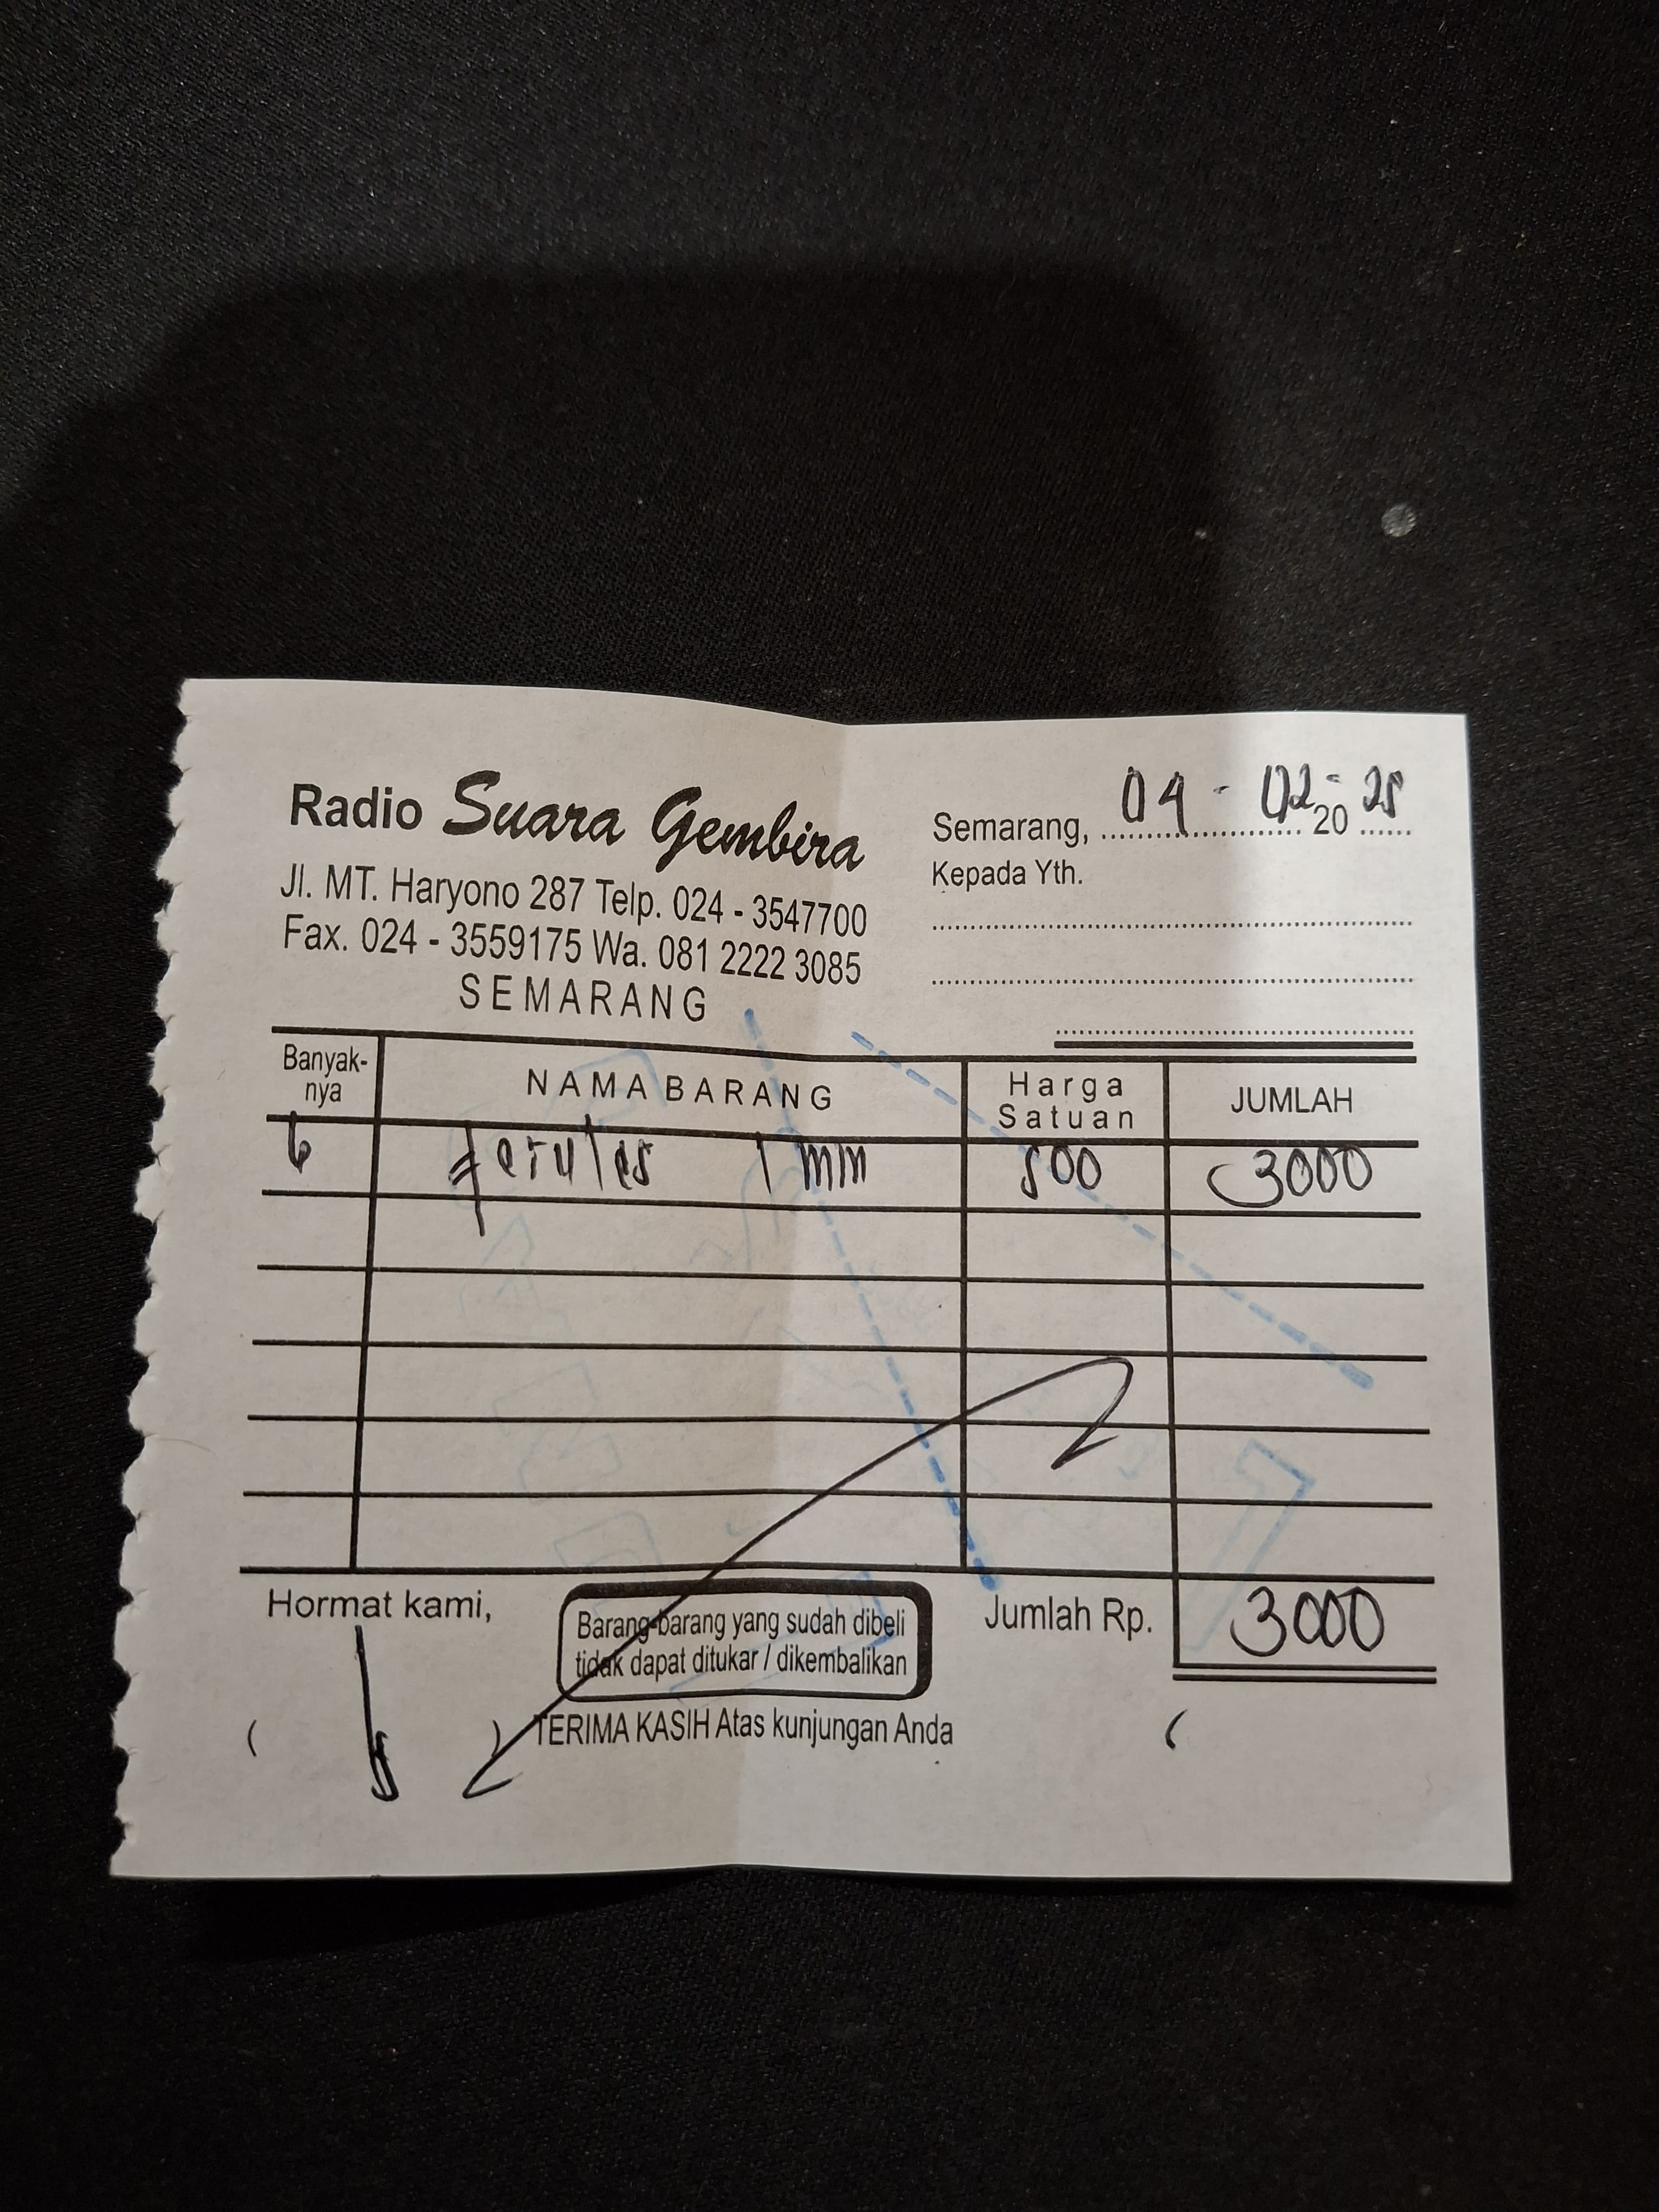 Radio Suara Gembira
Jl. MT. Haryono 287 Telp. 024 - 3547700
Fax. 024 - 3559175 Wa. 081 2222 3085
SEMARANG
Semarang, 04 - 02 - 20 25
Kepada Yth.
Banyak-nya NAMA BARANG Harga Satuan JUMLAH
6 ferules 1 mm 500 3000
Hormat kami,
Barang-barang yang sudah dibeli
tidak dapat ditukar / dikembalikan
Jumlah Rp. 3000
TERIMA KASIH Atas kunjungan Anda